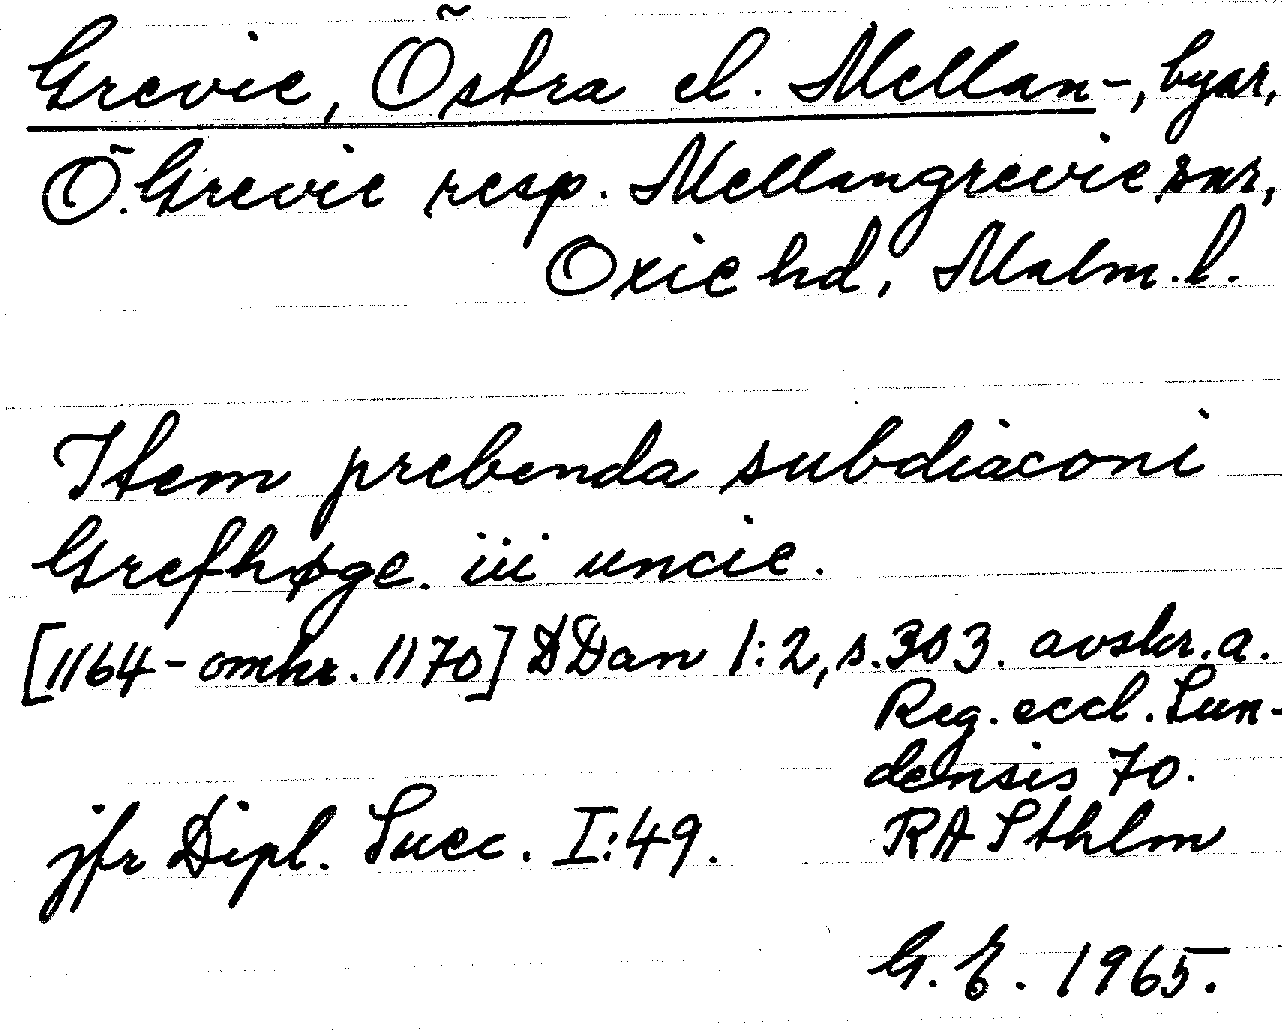 Grevie, Östra el. Mellan-, byar,
Ö. Grevie resp. Mellangrevie snr,
Oxie hd, Malm. l.
Item prebenda subdiaconi
Grefhøge. iii uncie.
[1164-omkr. 1170] DDan 1:2, s. 303. avskr. a.
Reg. eccl. Lun-
densis 70.
RA Sthlm
jfr Dipl. Suec. I:49.
G. E. 1965.